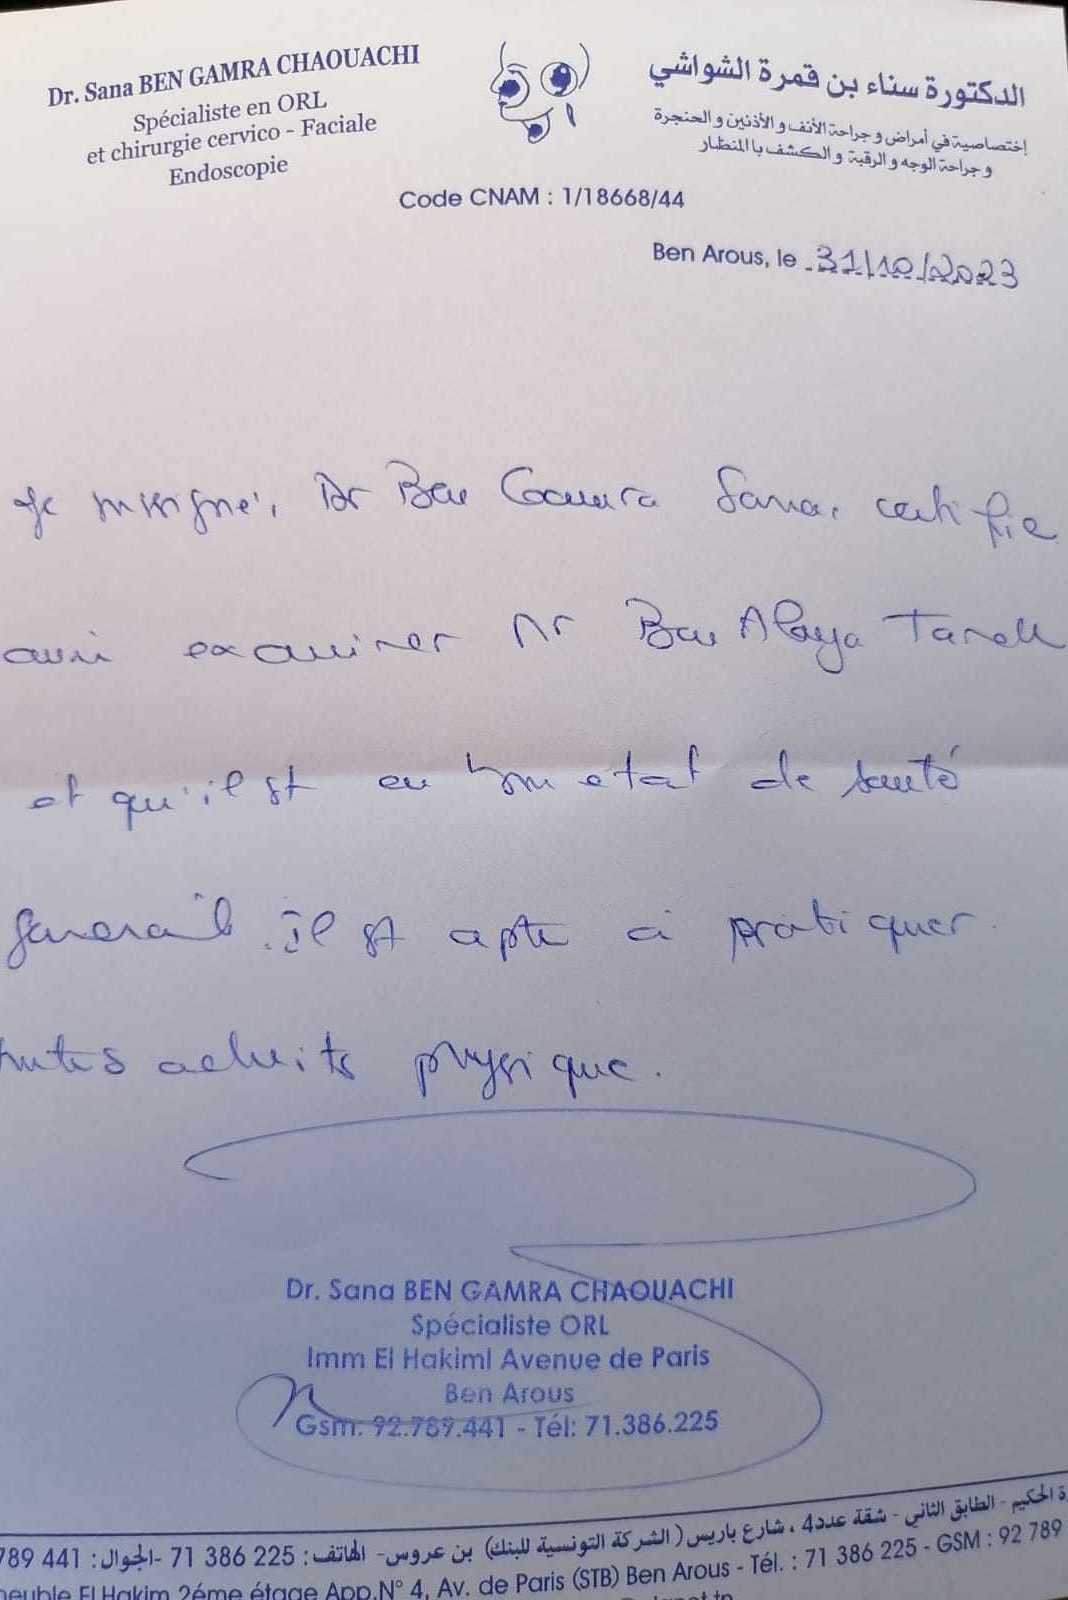 Dr. Sana BEN GAMRA CHAOUACHI
Spécialiste en ORL
et chirurgie cervico - Faciale
Endoscopie
الدكتورة سناء بن قمرة الشواشي
إختصاصية في أمراض و جراحة الأنف و الأذنين و الحنجرة
و جراحة الوجه و الرقبة و الكشف با لمنظار
Code CNAM : 1/18668/44
Ben Arous, le 31/10/2023
Je soussigné, Dr Ben Gamra Sana, certifie
avoir examiner Mr Ben Alaya Tarek
et qu'il est en bon etat de santé
general. il est apte à pratiquer
toutes activits physique.
Dr. Sana BEN GAMRA CHAOUACHI
Spécialiste ORL
Imm El Hakiml Avenue de Paris
Ben Arous
Gsm: 92.789.441 - Tél: 71.386.225
الحكيم - الطابق الثاني - شقة عدد4 ، شارع باريس ( الشركة التونسية للبنك) بن عروس- الهاتف : 225 386 71 -الجوال: 441 789
El Hakim 2éme étage App.N° 4, Av. de Paris (STB) Ben Arous - Tél. : 71 386 225 - GSM : 92 789